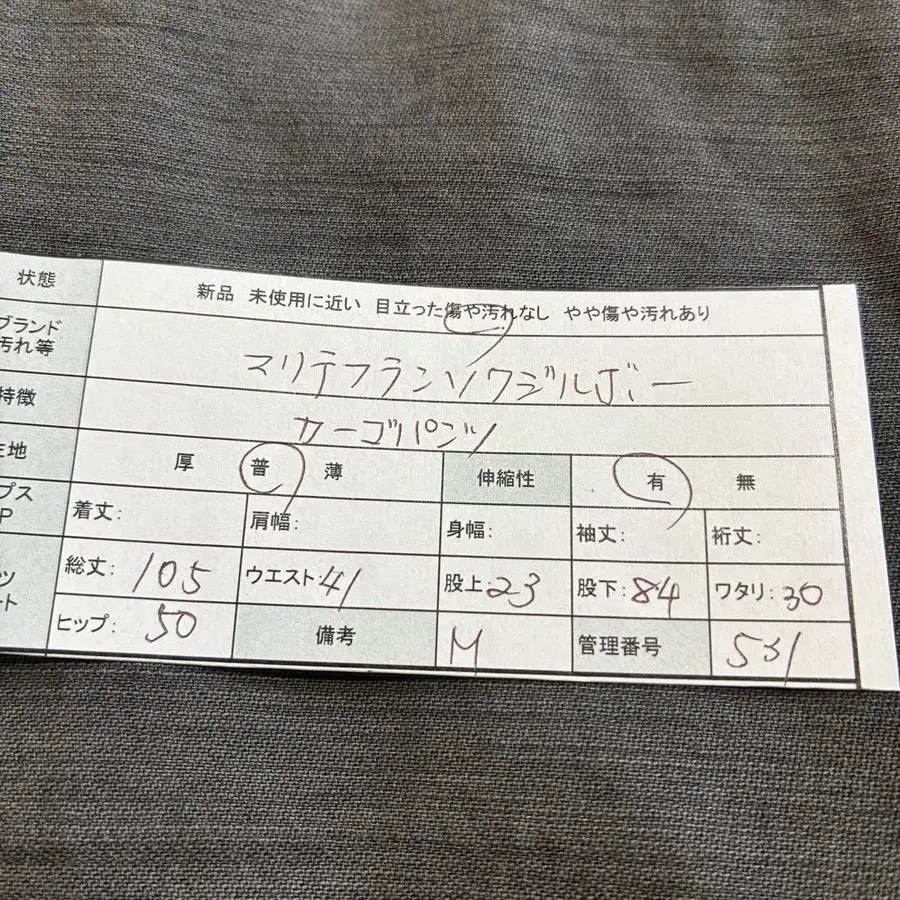 状態 新品 未使用に近い 目立った傷や汚れなし やや傷や汚れあり
ブランド
汚れ等 マリテフランソワジルボー
特徴 カーゴパンツ
生地 厚 普 薄 伸縮性 有 無
プス
P 着丈: 肩幅: 身幅: 袖丈: 裄丈:
ツ 総丈: 105 ウエスト: 41 股上: 23 股下: 84 ワタリ: 30
ート ヒップ: 50 備考 M 管理番号 531